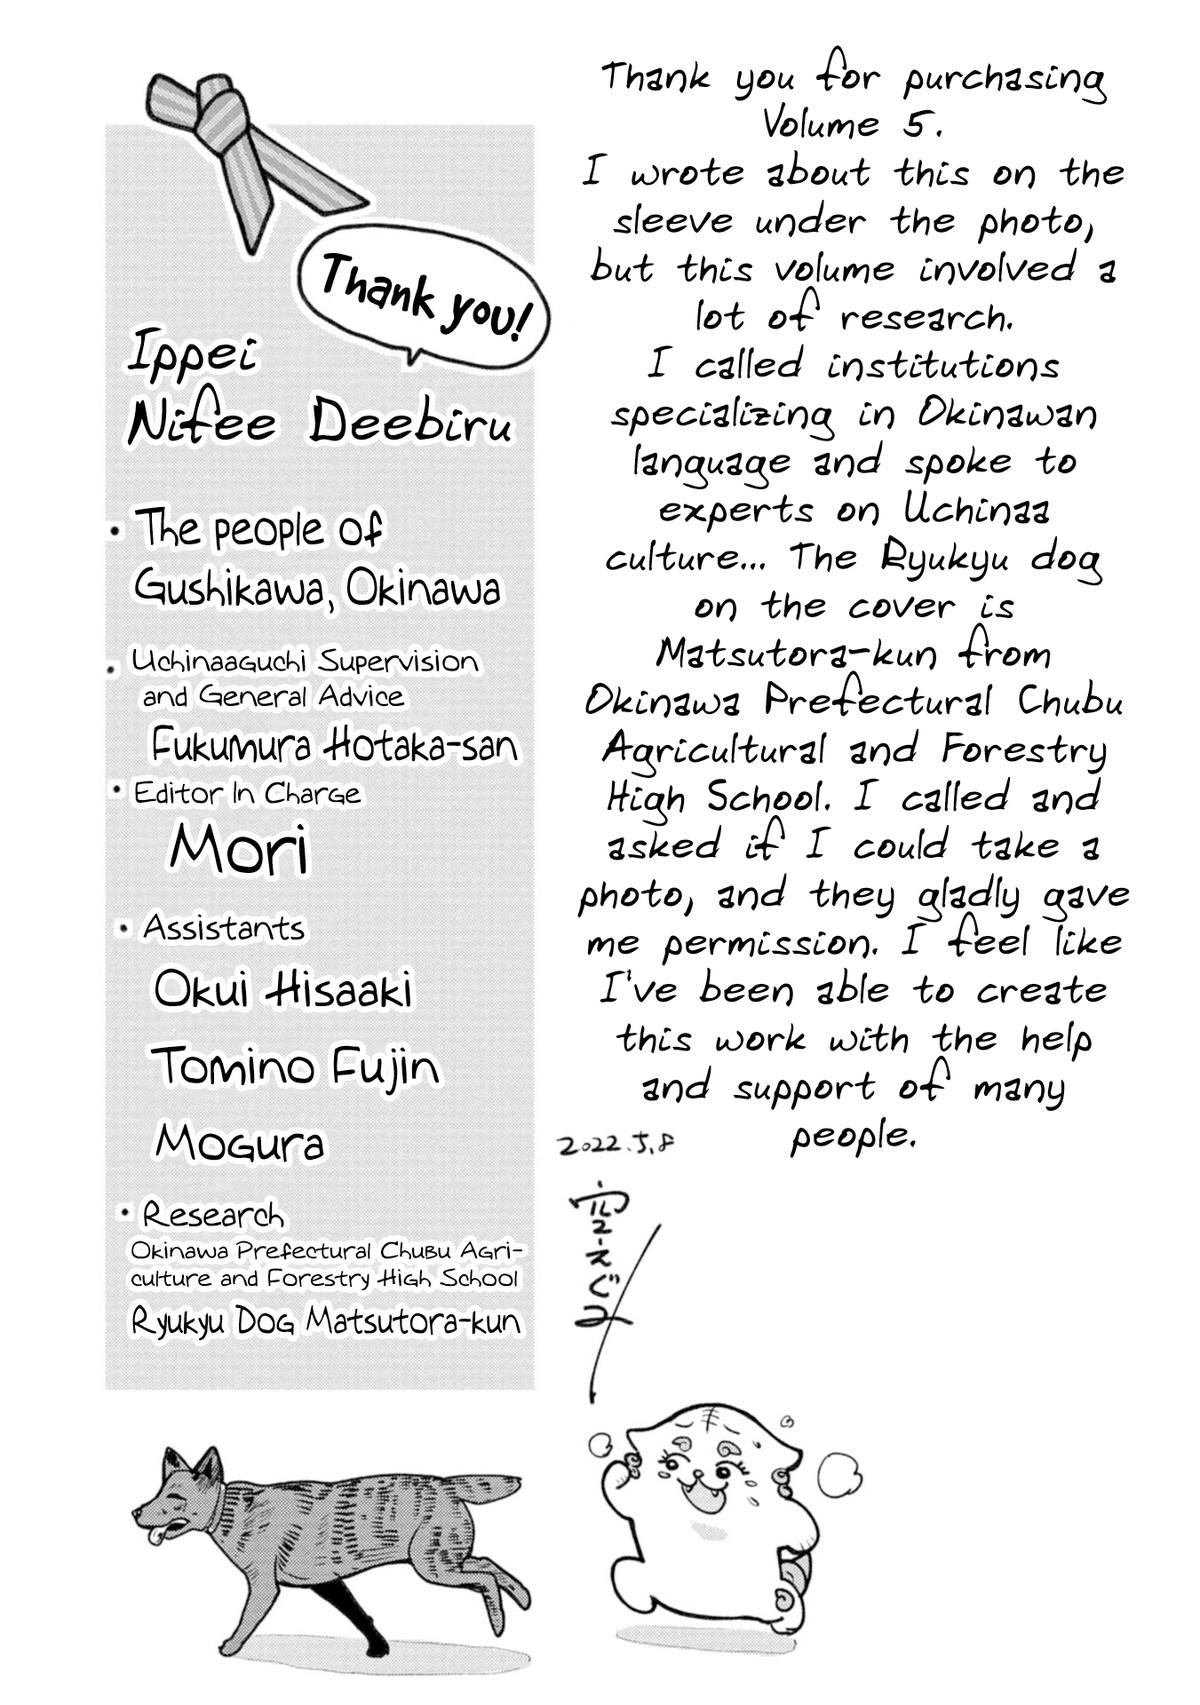 Thank you for purchasing
Volume 5.
I wrote about this on the
sleeve under the photo,
but this volume involved a
lot of research.
I called institutions
specializing in Okinawan
language and spoke to
experts on Uchinaa
culture... The Ryukyu dog
on the cover is
Matsutora-kun from
Okinawa Prefectural Chubu
Agricultural and Forestry
High School. I called and
asked if I could take a
photo, and they gladly gave
me permission. I feel like
I've been able to create
this work with the help
and support of many
people.
2022.5.8
空えぐみ
Thank you!
Ippei
Nifee Deebiru
• The people of
Gushikawa, Okinawa
• Uchinaaguchi Supervision
and General Advice
Fukumura Hotaka-san
• Editor In Charge
Mori
• Assistants
Okui Hisaaki
Tomino Fujin
Mogura
• Research
Okinawa Prefectural Chubu Agri-
culture and Forestry High School
Ryukyu Dog Matsutora-kun